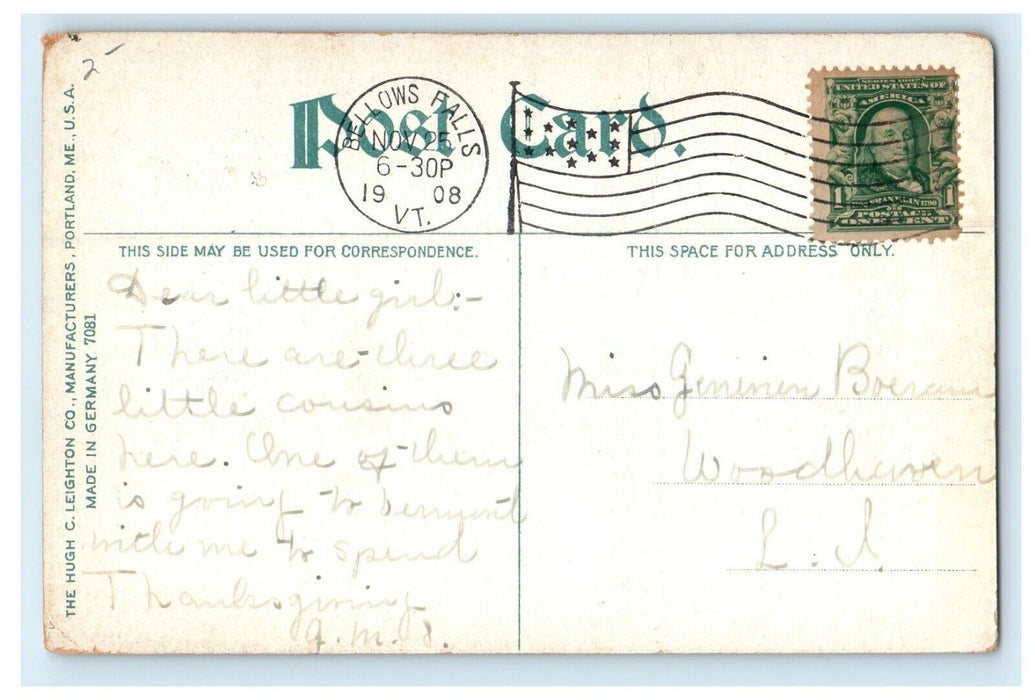 2-
Post Card.
BELLOWS FALLS
NOV 25
6-30P
19 08
VT.
SERIES 1902
UNITED STATES OF
AMERICA
1 1
FRANKLIN 1790
POSTAGE
ONE CENT
THIS SIDE MAY BE USED FOR CORRESPONDENCE.
THIS SPACE FOR ADDRESS ONLY.
THE HUGH C. LEIGHTON CO., MANUFACTURERS, PORTLAND, ME., U.S.A.
MADE IN GERMANY 7081
Dear little girl:-
There are three
little cousins
here. One of them
is going to Vermont
with me to spend
Thanksgiving
Miss
Woodhaven
L. I.